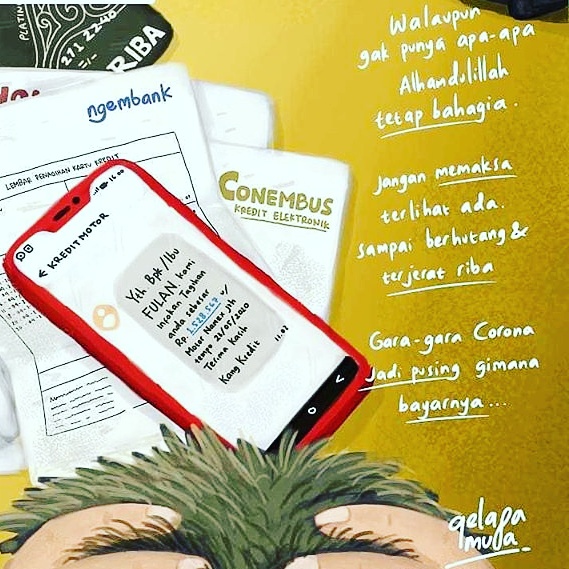 PLATIN
27.1 22.40
RIBA
ngembank
LEMBAR PENAGIHAN KARTU KREDIT
CONEMBUS
KREDIT ELEKTRONIK
16:00
← KREDIT MOTOR
Yth. Bpk/Ibu
FULAN kami
Infokan Tagihan
anda sebesar
Rp. 1.528.567 u/
Motor Nanex jth
tempo 21/05/2020
Terima Kasih
Kang Kredit
11.02
Walaupun
gak punya apa-apa
Alhamdulillah
tetap bahagia.
Jangan memaksa
terlihat ada.
sampai berhutang &
terjerat riba
Gara-gara Corona
Jadi pusing gimana
bayarnya...
gelapa
muda